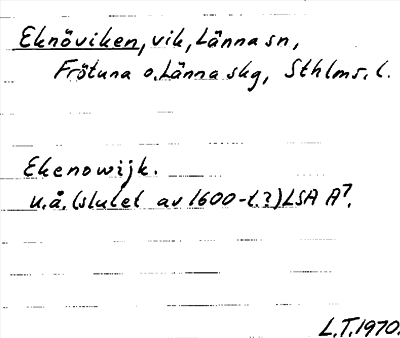 Eknöviken, vik, Länna sn,
Frötuna o. Länna skg, Sthlms. l.
Ekenowijk.
u.å. (slutet av 1600-t.?) LSA A7.
L.T. 1970.